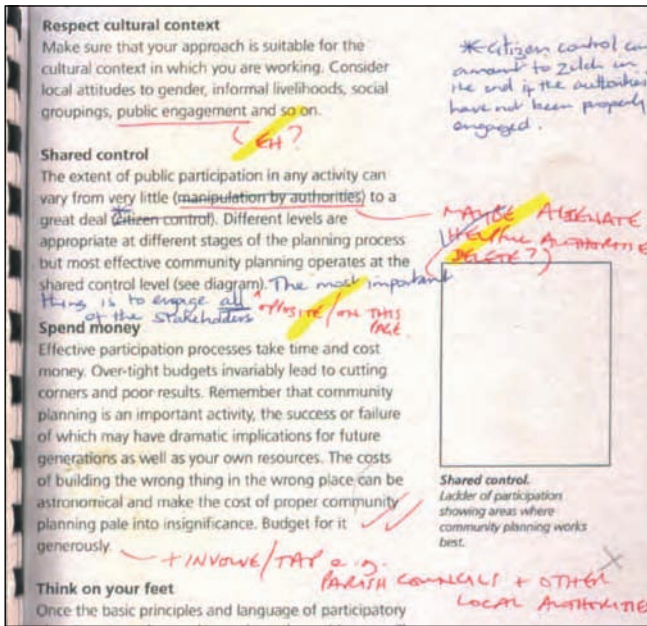 Respect cultural context
Make sure that your approach is suitable for the
cultural context in which you are working. Consider
local attitudes to gender, informal livelihoods, social
groupings, public engagement and so on.
EH?
* citizen control can
amount to zilch in
the end if the authorities
have not been properly
engaged.
Shared control
The extent of public participation in any activity can
vary from very little (manipulation by authorities) to a
great deal (citizen control). Different levels are
appropriate at different stages of the planning process
but most effective community planning operates at the
shared control level (see diagram). The most important
thing is to engage all
of the stakeholders
OPPOSITE/ON THIS
PAGE
MAYBE ALIENATE
HELPFUL AUTHORITIES
(DELETE?)
Spend money
Effective participation processes take time and cost
money. Over-tight budgets invariably lead to cutting
corners and poor results. Remember that community
planning is an important activity, the success or failure
of which may have dramatic implications for future
generations as well as your own resources. The costs
of building the wrong thing in the wrong place can be
astronomical and make the cost of proper community
planning pale into insignificance. Budget for it
generously.
+ INVOLVE/TAP e.g.
PARISH COUNCILS + OTHER
LOCAL AUTHORITIES
Shared control.
Ladder of participation
showing areas where
community planning works
best.
Think on your feet
Once the basic principles and language of participatory